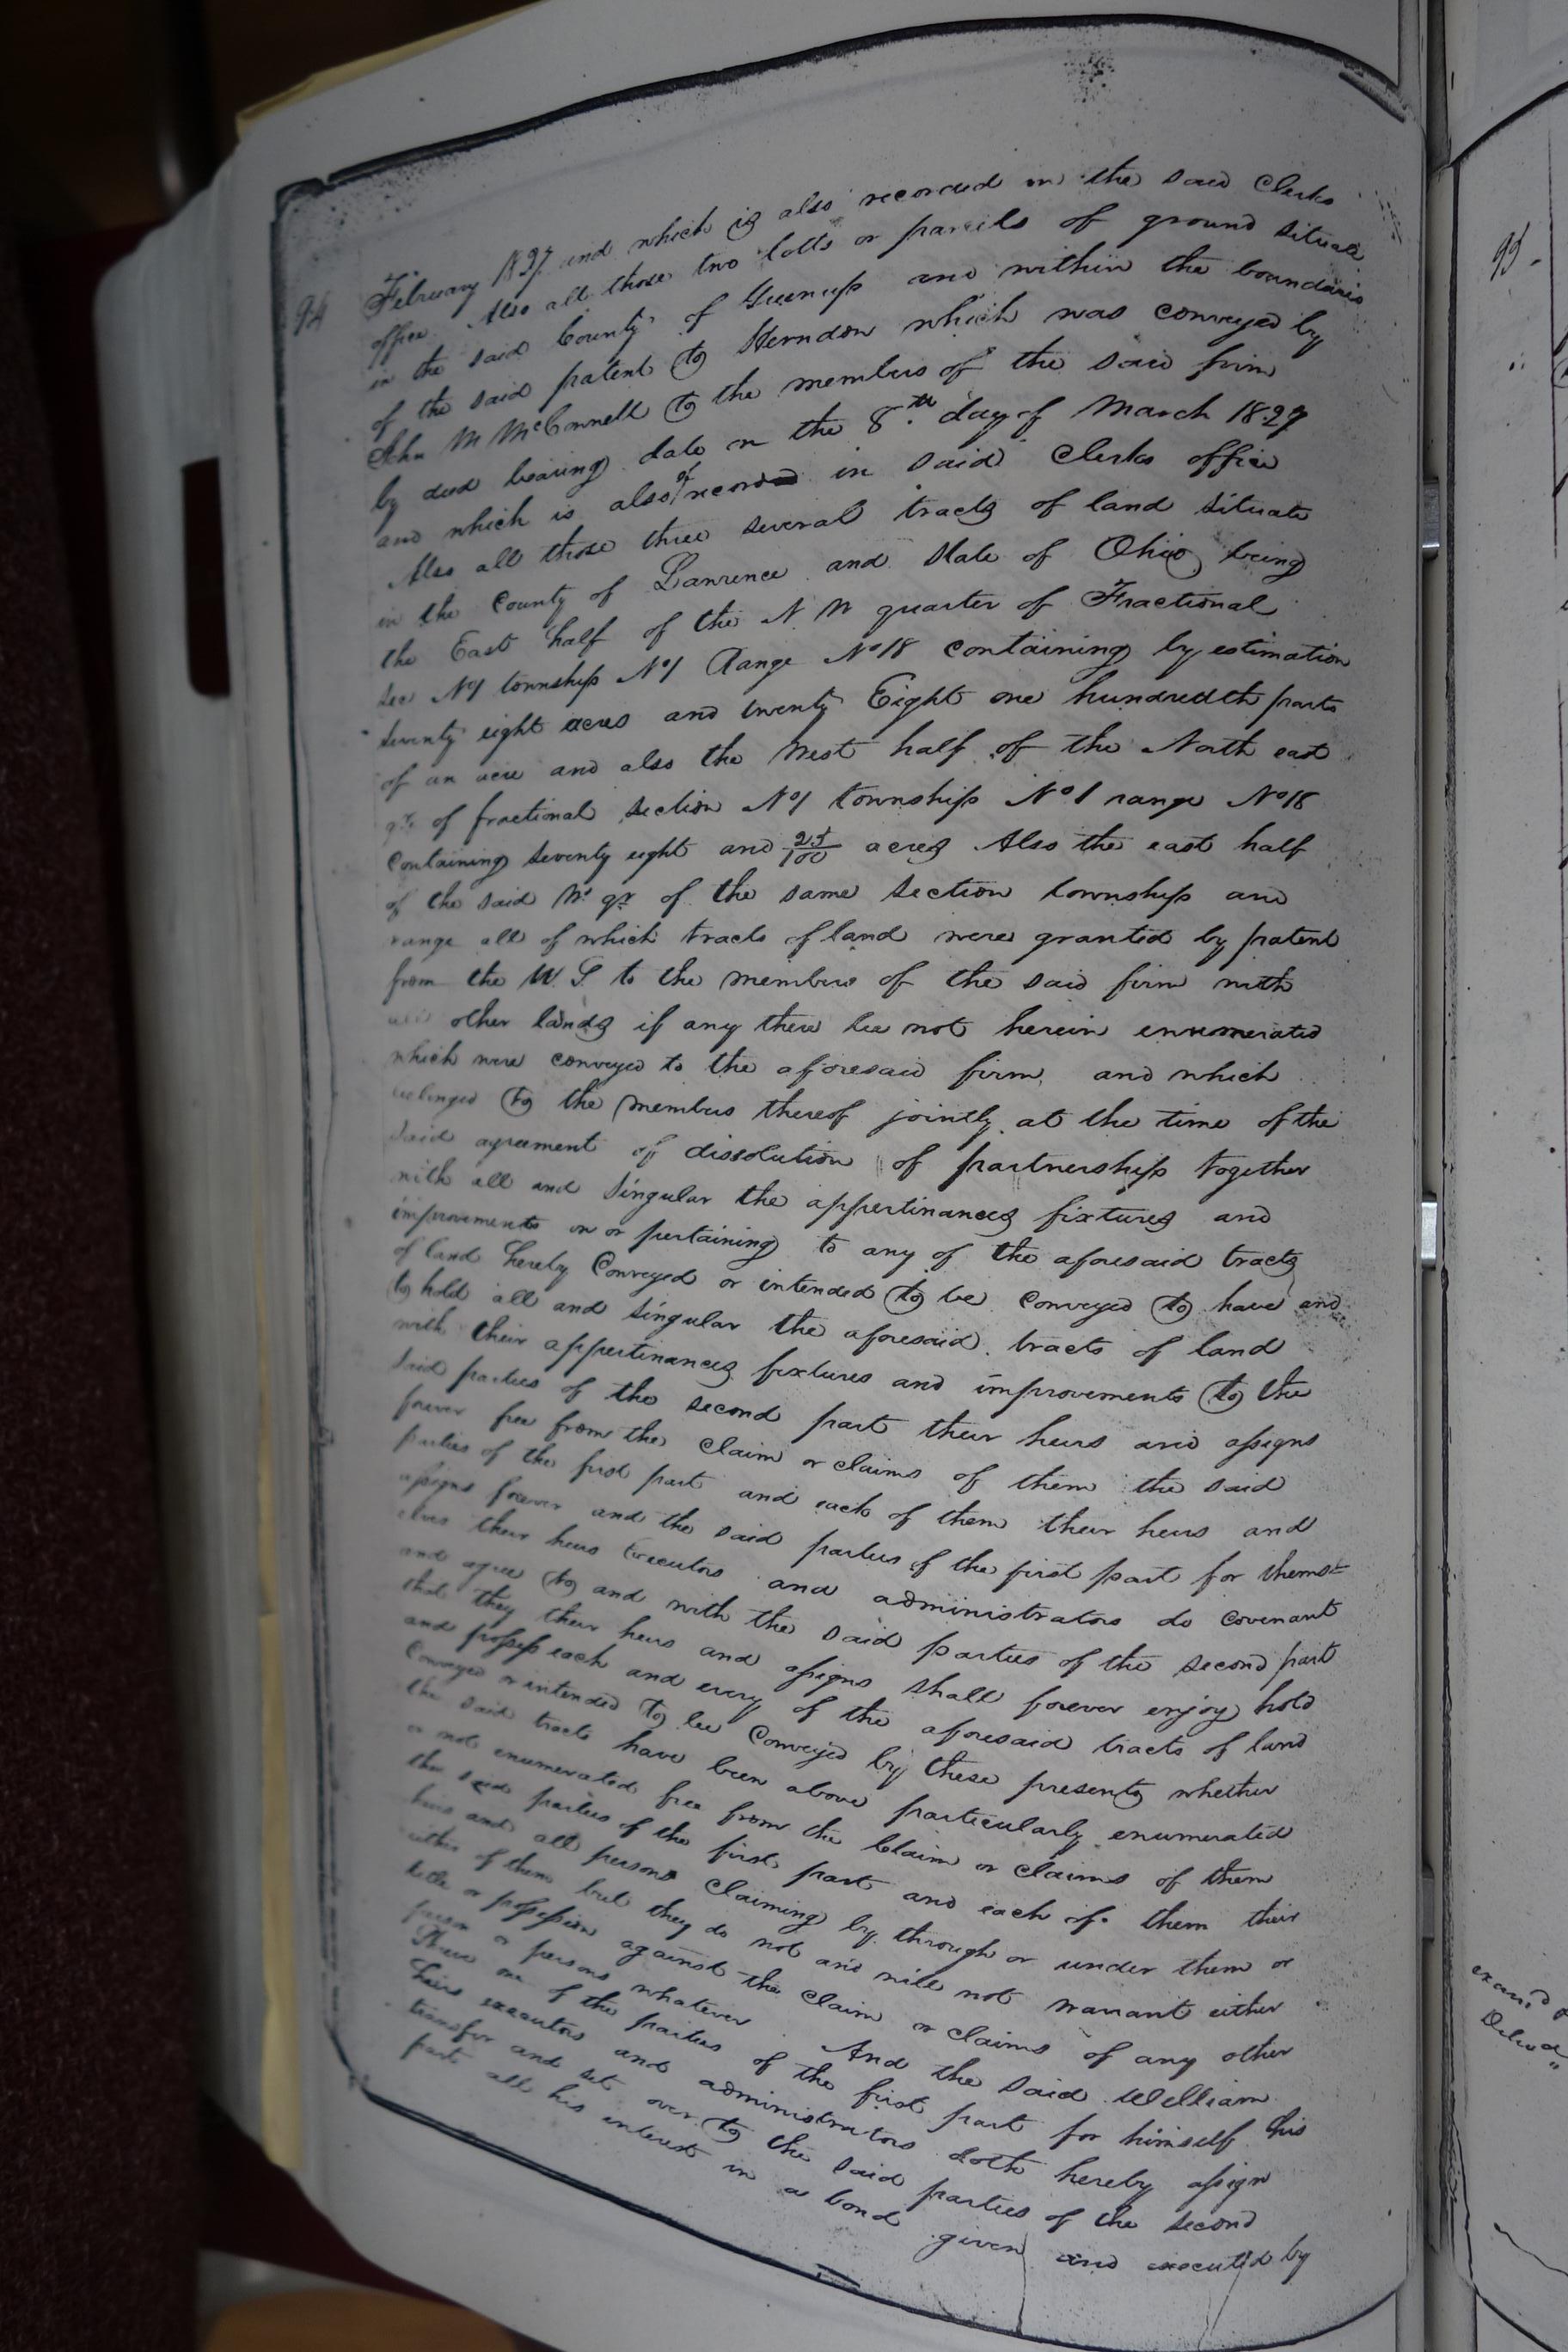 94
February 1827 and which is also recorded in the said Clerks
office. Also all those two lotts or parcels of ground situate
in the said County of Greenup and within the boundaries
of the said patent to Herndon which was conveyed by
John M McConnell to the members of the said firm
by deed bearing date on the 8th day of March 1827
and which is also of record in said Clerks office
Also all those three several tracts of land situate
in the County of Lawrence and State of Ohio being
the East half of the N W quarter of Fractional
Sec No 1 township No 1 Range No 18 containing by estimation
Seventy eight acres and twenty Eight one hundredth parts
of an acre and also the West half of the North east
qr. of fractional section No 1 township No 1 range No 18
Containing seventy eight and 25/100 acres Also the east half
of the said N. qr of the same section township and
range all of which tracts of land were granted by patent
from the U. S. to the members of the said firm with
all other lands if any there be not herein enumerated
which were conveyed to the aforesaid firm and which
belonged to the members thereof jointly at the time of the
said agreement of dissolution of partnership together
with all and singular the appertinances fixtures and
improvements on or pertaining to any of the aforesaid tracts
of land hereby Conveyed or intended to be conveyed to have and
to hold all and singular the aforesaid tracts of land
with their appertinances fixtures and improvements to the
said parties of the second part their heirs and assigns
forever free from the claim or claims of them the said
parties of the first part and each of them their heirs and
assigns forever and the said parties of the first part for thems=
elves their heirs Executors and administrators do covenant
and agree to and with the said parties of the second part
that they their heirs and assigns shall forever enjoy hold
and possess each and every of the aforesaid tracts of land
Conveyed or intended to be Conveyed by these presents whether
the said tracts have been above particularly enumerated
or not enumerated free from the Claim or claims of them
the said parties of the first part and each of them their
heirs and all persons Claiming by through or under them or
either of them but they do not and will not warrant either
title or possession against the claim or claims of any other
person or persons whatever. And the said William
one of the parties of the first part for himself his
heirs executors and administrators doth hereby assign
transfer and set over to the said parties of the second
part all his interest in a bond given and executed by
95.